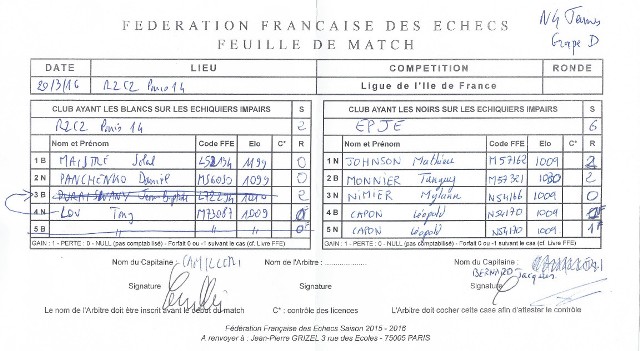 FEDERATION FRANCAISE DES ECHECS
FEUILLE DE MATCH
N4 Jeunes
Groupe D
DATE LIEU COMPETITION RONDE
20/3/16 R2C2 Paris 14 Ligue de l'Ile de France
CLUB AYANT LES BLANCS SUR LES ECHIQUIERS IMPAIRS S
R2C2 Paris 14 2
Nom et Prénom Code FFE Elo C* R
1 B MAISTRE 1199 0
2 N PANCHENKO Daniil M56035 1099 0
3 B 2
4 N LOU Tong M73067 1009
5 B " " "
CLUB AYANT LES NOIRS SUR LES ECHIQUIERS IMPAIRS S
EPJE 6
Nom et Prénom Code FFE Elo C* R
1 N JOHNSON Mathieu M57162 1009 2
2 B MONNIER Tanguy M57321 1080 2
3 N NIMIER N54166 1009 0
4 B CAPON Léopold N54170 1009
5 N CAPON Léopold N54170 1009 1F
GAIN : 1 - PERTE : 0 - NULL (pas comptabilisé) - Forfait 0 ou -1 suivant le cas (cf. Livre FFE)
GAIN : 1 - PERTE : 0 - NULL (pas comptabilisé) - Forfait 0 ou -1 suivant le cas (cf. Livre FFE)
Nom du Capitaine : CAMILLERI Nom de l'Arbitre : Nom du Capitaine :
BERNARD Jacques
Signature Signature Signature
Le nom de l'Arbitre doit être inscrit avant le début du match C* : contrôle des licences L'Arbitre doit cocher cette case afin d'attester le contrôle
Fédération Française des Echecs Saison 2015 - 2016
A renvoyer à : Jean-Pierre GRIZEL 3 rue des Ecoles - 75005 PARIS